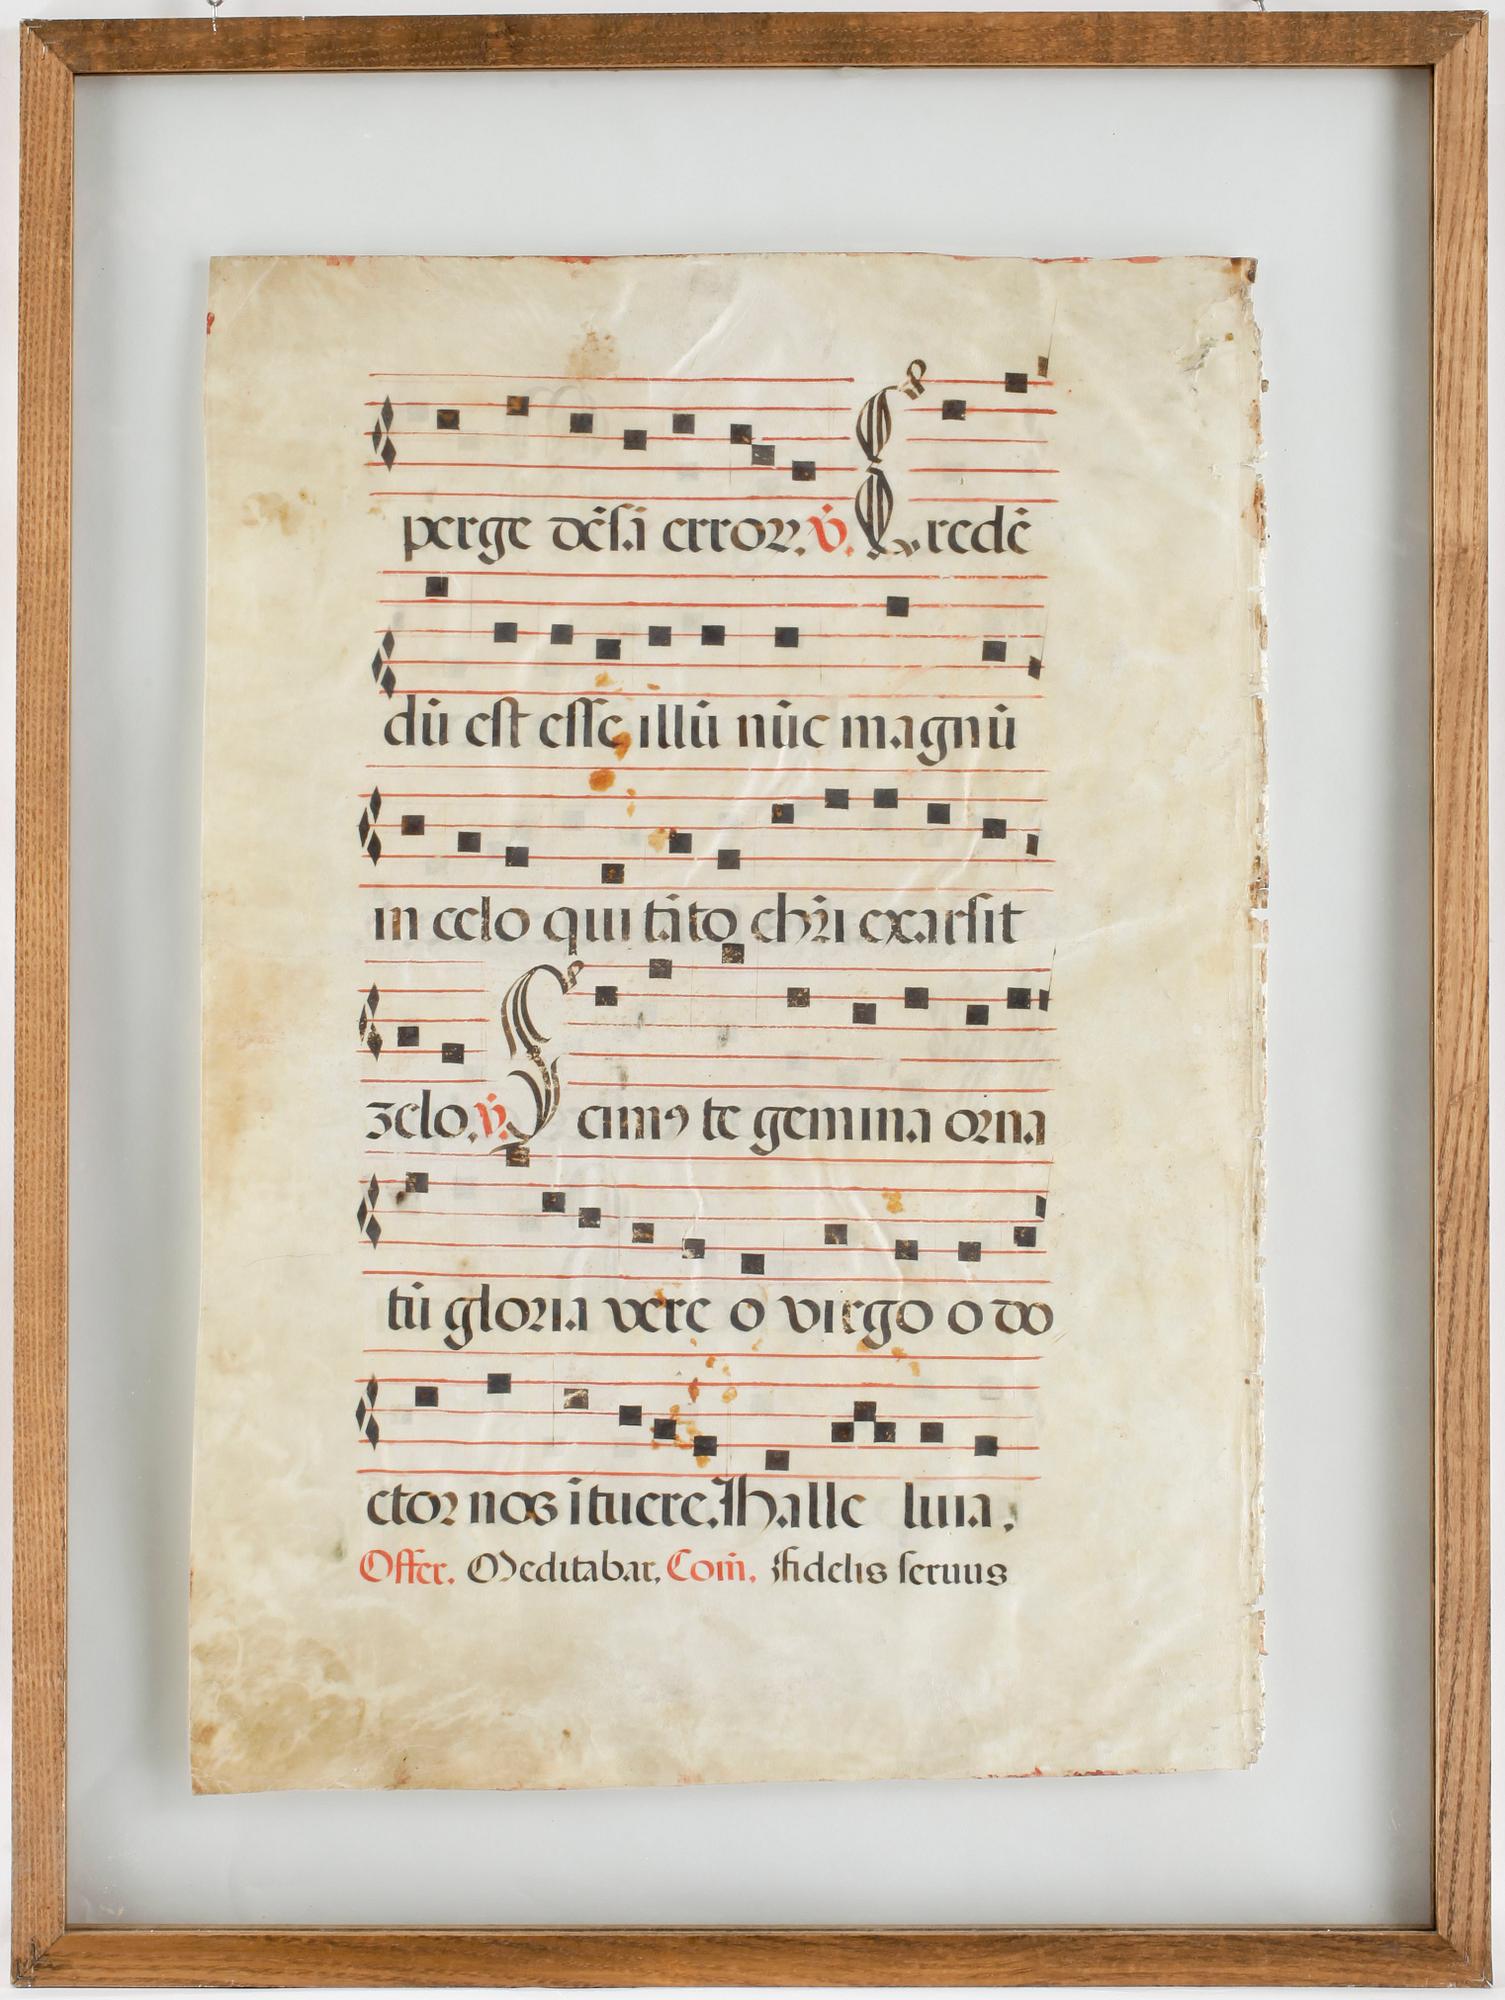 perge dēsā error. v̄. Credē
dū est esse illū nūc magnū
in celo qui tāto chr̄i exarsit
zelo. v̄. Scimꝰ te gemina orna
tū gloria vere o virgo o do
ctor nos ītuere. Halle luia.
Offer. Meditabar. Com̄. Fidelis seruus